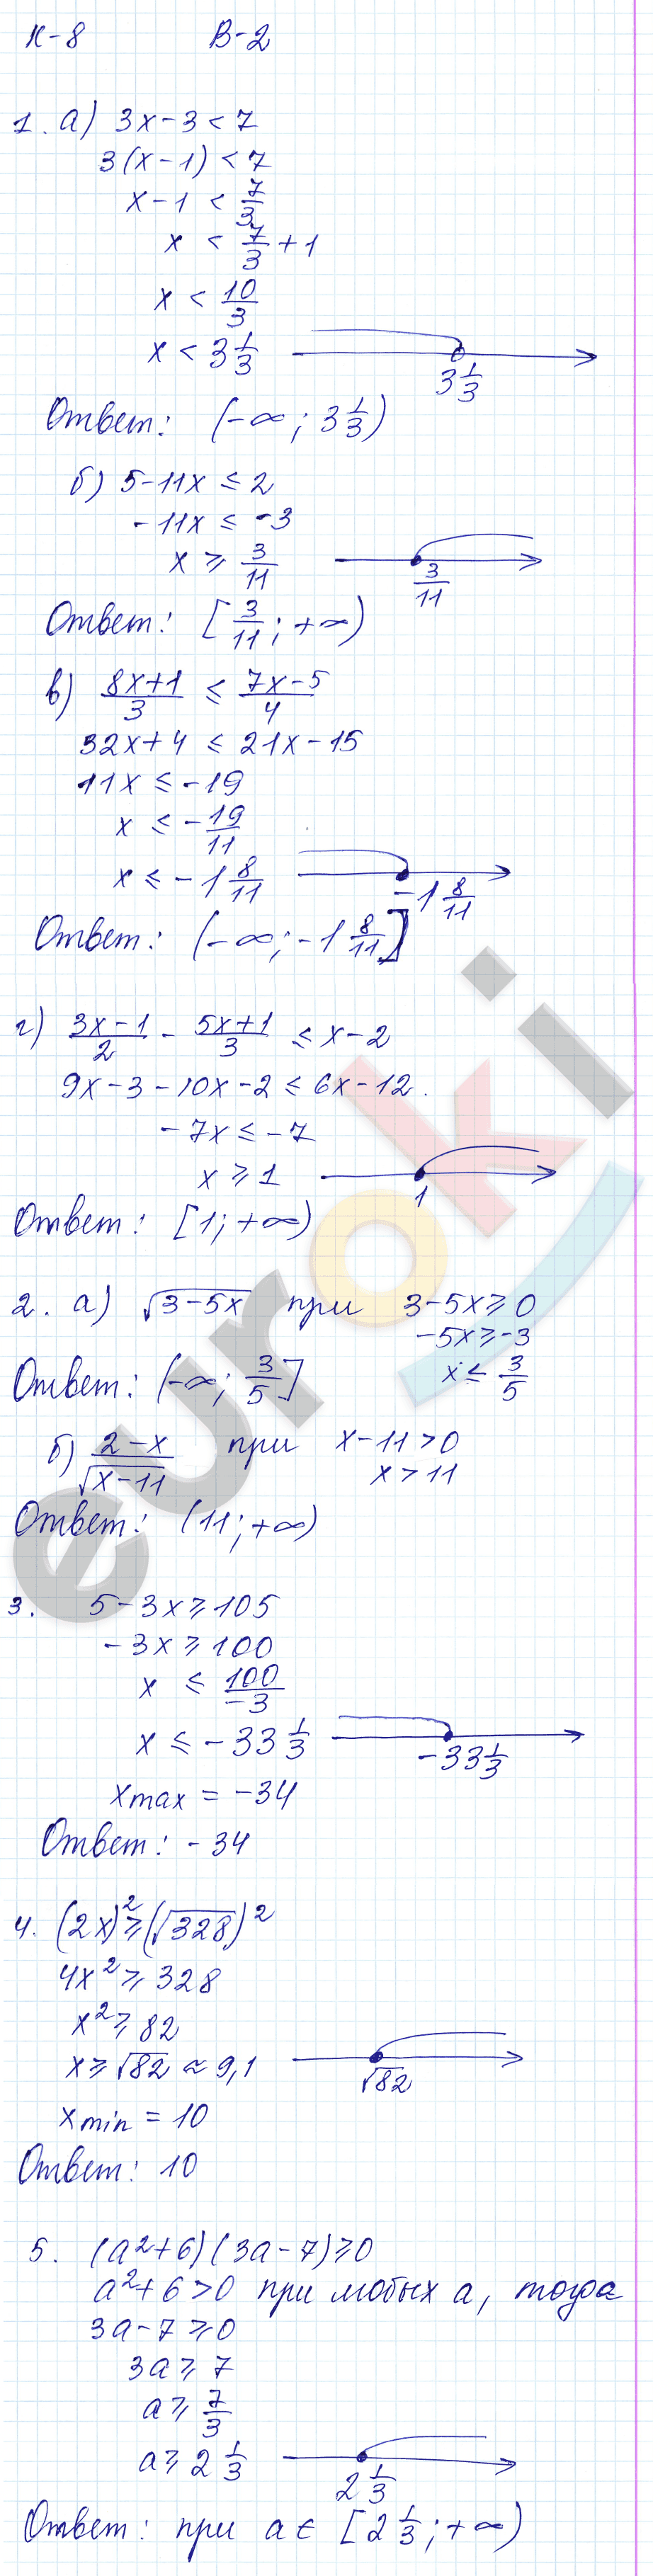 К-8 В-2
1. а) 3x-3<7
3(x-1)<7
x-1 < 7/3
x < 7/3 + 1
x < 10/3
x < 3 1/3
3 1/3
Ответ: (-∞; 3 1/3)
б) 5-11x ≤ 2
-11x ≤ -3
x ≥ 3/11
3/11
Ответ: [3/11; +∞)
в) (8x+1)/3 ≤ (7x-5)/4
32x+4 ≤ 21x-15
11x ≤ -19
x ≤ -19/11
x ≤ -1 8/11
-1 8/11
Ответ: (-∞; -1 8/11]
г) (3x-1)/2 - (5x+1)/3 ≤ x-2
9x-3-10x-2 ≤ 6x-12.
-7x ≤ -7
x ≥ 1
1
Ответ: [1; +∞)
2. а) √(3-5x) при 3-5x ≥ 0
-5x ≥ -3
x ≤ 3/5
Ответ: (-∞; 3/5]
б) (2-x)/√(x-11) при x-11 > 0
x > 11
Ответ: (11; +∞)
3. 5-3x ≥ 105
-3x ≥ 100
x ≤ 100/-3
x ≤ -33 1/3
-33 1/3
xmax = -34
Ответ: -34
4. (2x)² ≥ (√328)²
4x² ≥ 328
x² ≥ 82
x ≥ √82 ≈ 9,1
√82
xmin = 10
Ответ: 10
5. (a²+6)(3a-7) ≥ 0
a²+6 > 0 при любых a, тогда
3a-7 ≥ 0
3a ≥ 7
a ≥ 7/3
a ≥ 2 1/3
2 1/3
Ответ: при a ∈ [2 1/3; +∞)
euroki